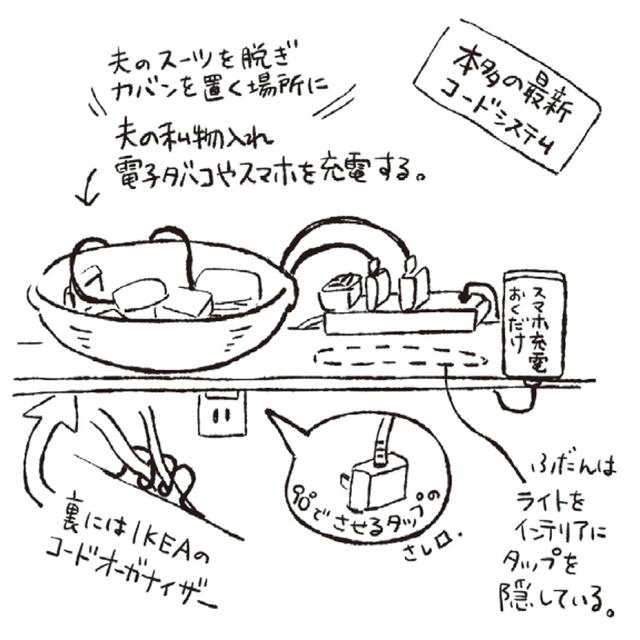 夫のスーツを脱ぎ
カバンを置く場所に
夫の私物入れ
電子タバコやスマホを充電する。
本多の最新
コードシステム
スマホ充電
おくだけ
裏にはIKEAの
コードオーガナイザー
90°でさせるタップの
さし口.
ふだんは
ライトを
インテリアに
タップを
隠している。